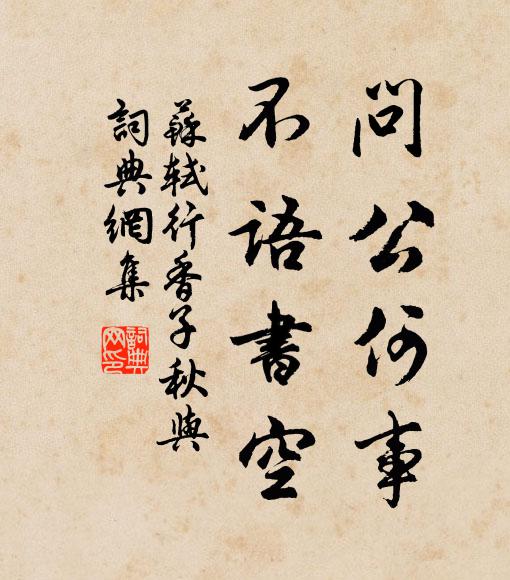 問公何事
不語書空
蘇軾行香子秋與
詞典網集
詞典
网印